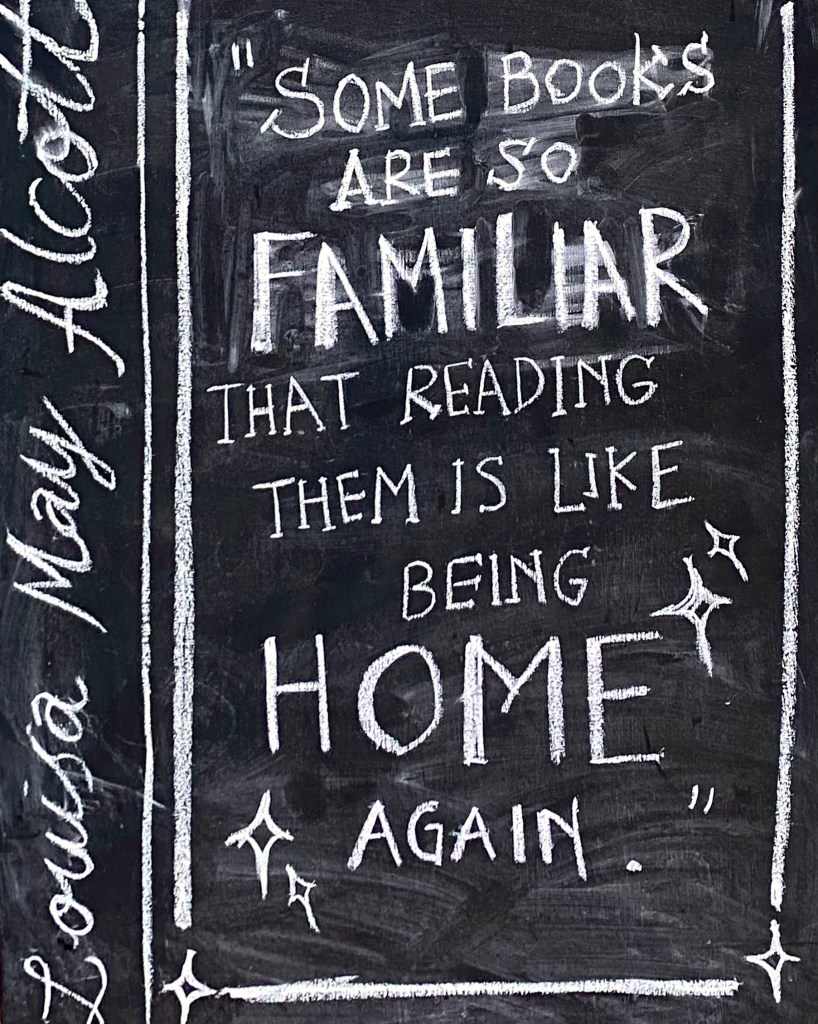 "SOME BOOKS
ARE SO
FAMILIAR
THAT READING
THEM IS LIKE
BEING
HOME
AGAIN."
Louisa May Alcott